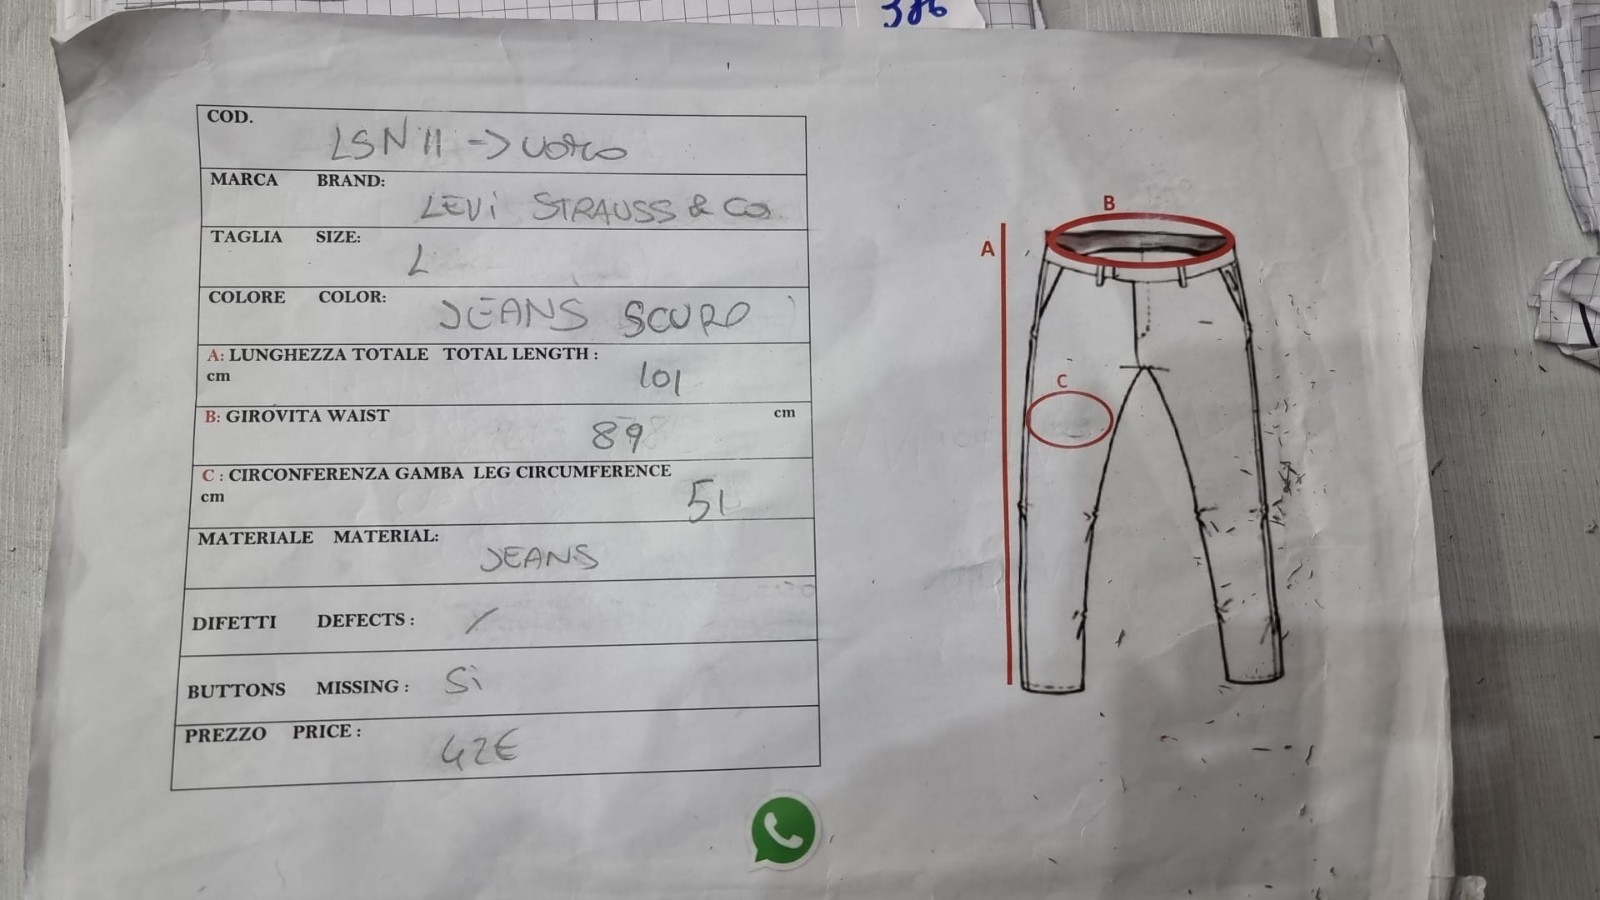 386
COD.
LSN11 -> UOMO
MARCA BRAND:
LEVi STRAUSS & Co
TAGLIA SIZE:
L
COLORE COLOR:
JEANS SCURO
A: LUNGHEZZA TOTALE TOTAL LENGTH :
cm
101
B: GIROVITA WAIST cm
89
C : CIRCONFERENZA GAMBA LEG CIRCUMFERENCE
cm
51
MATERIALE MATERIAL:
JEANS
DIFETTI DEFECTS : /
BUTTONS MISSING : Sì
PREZZO PRICE :
42€
B
A
C